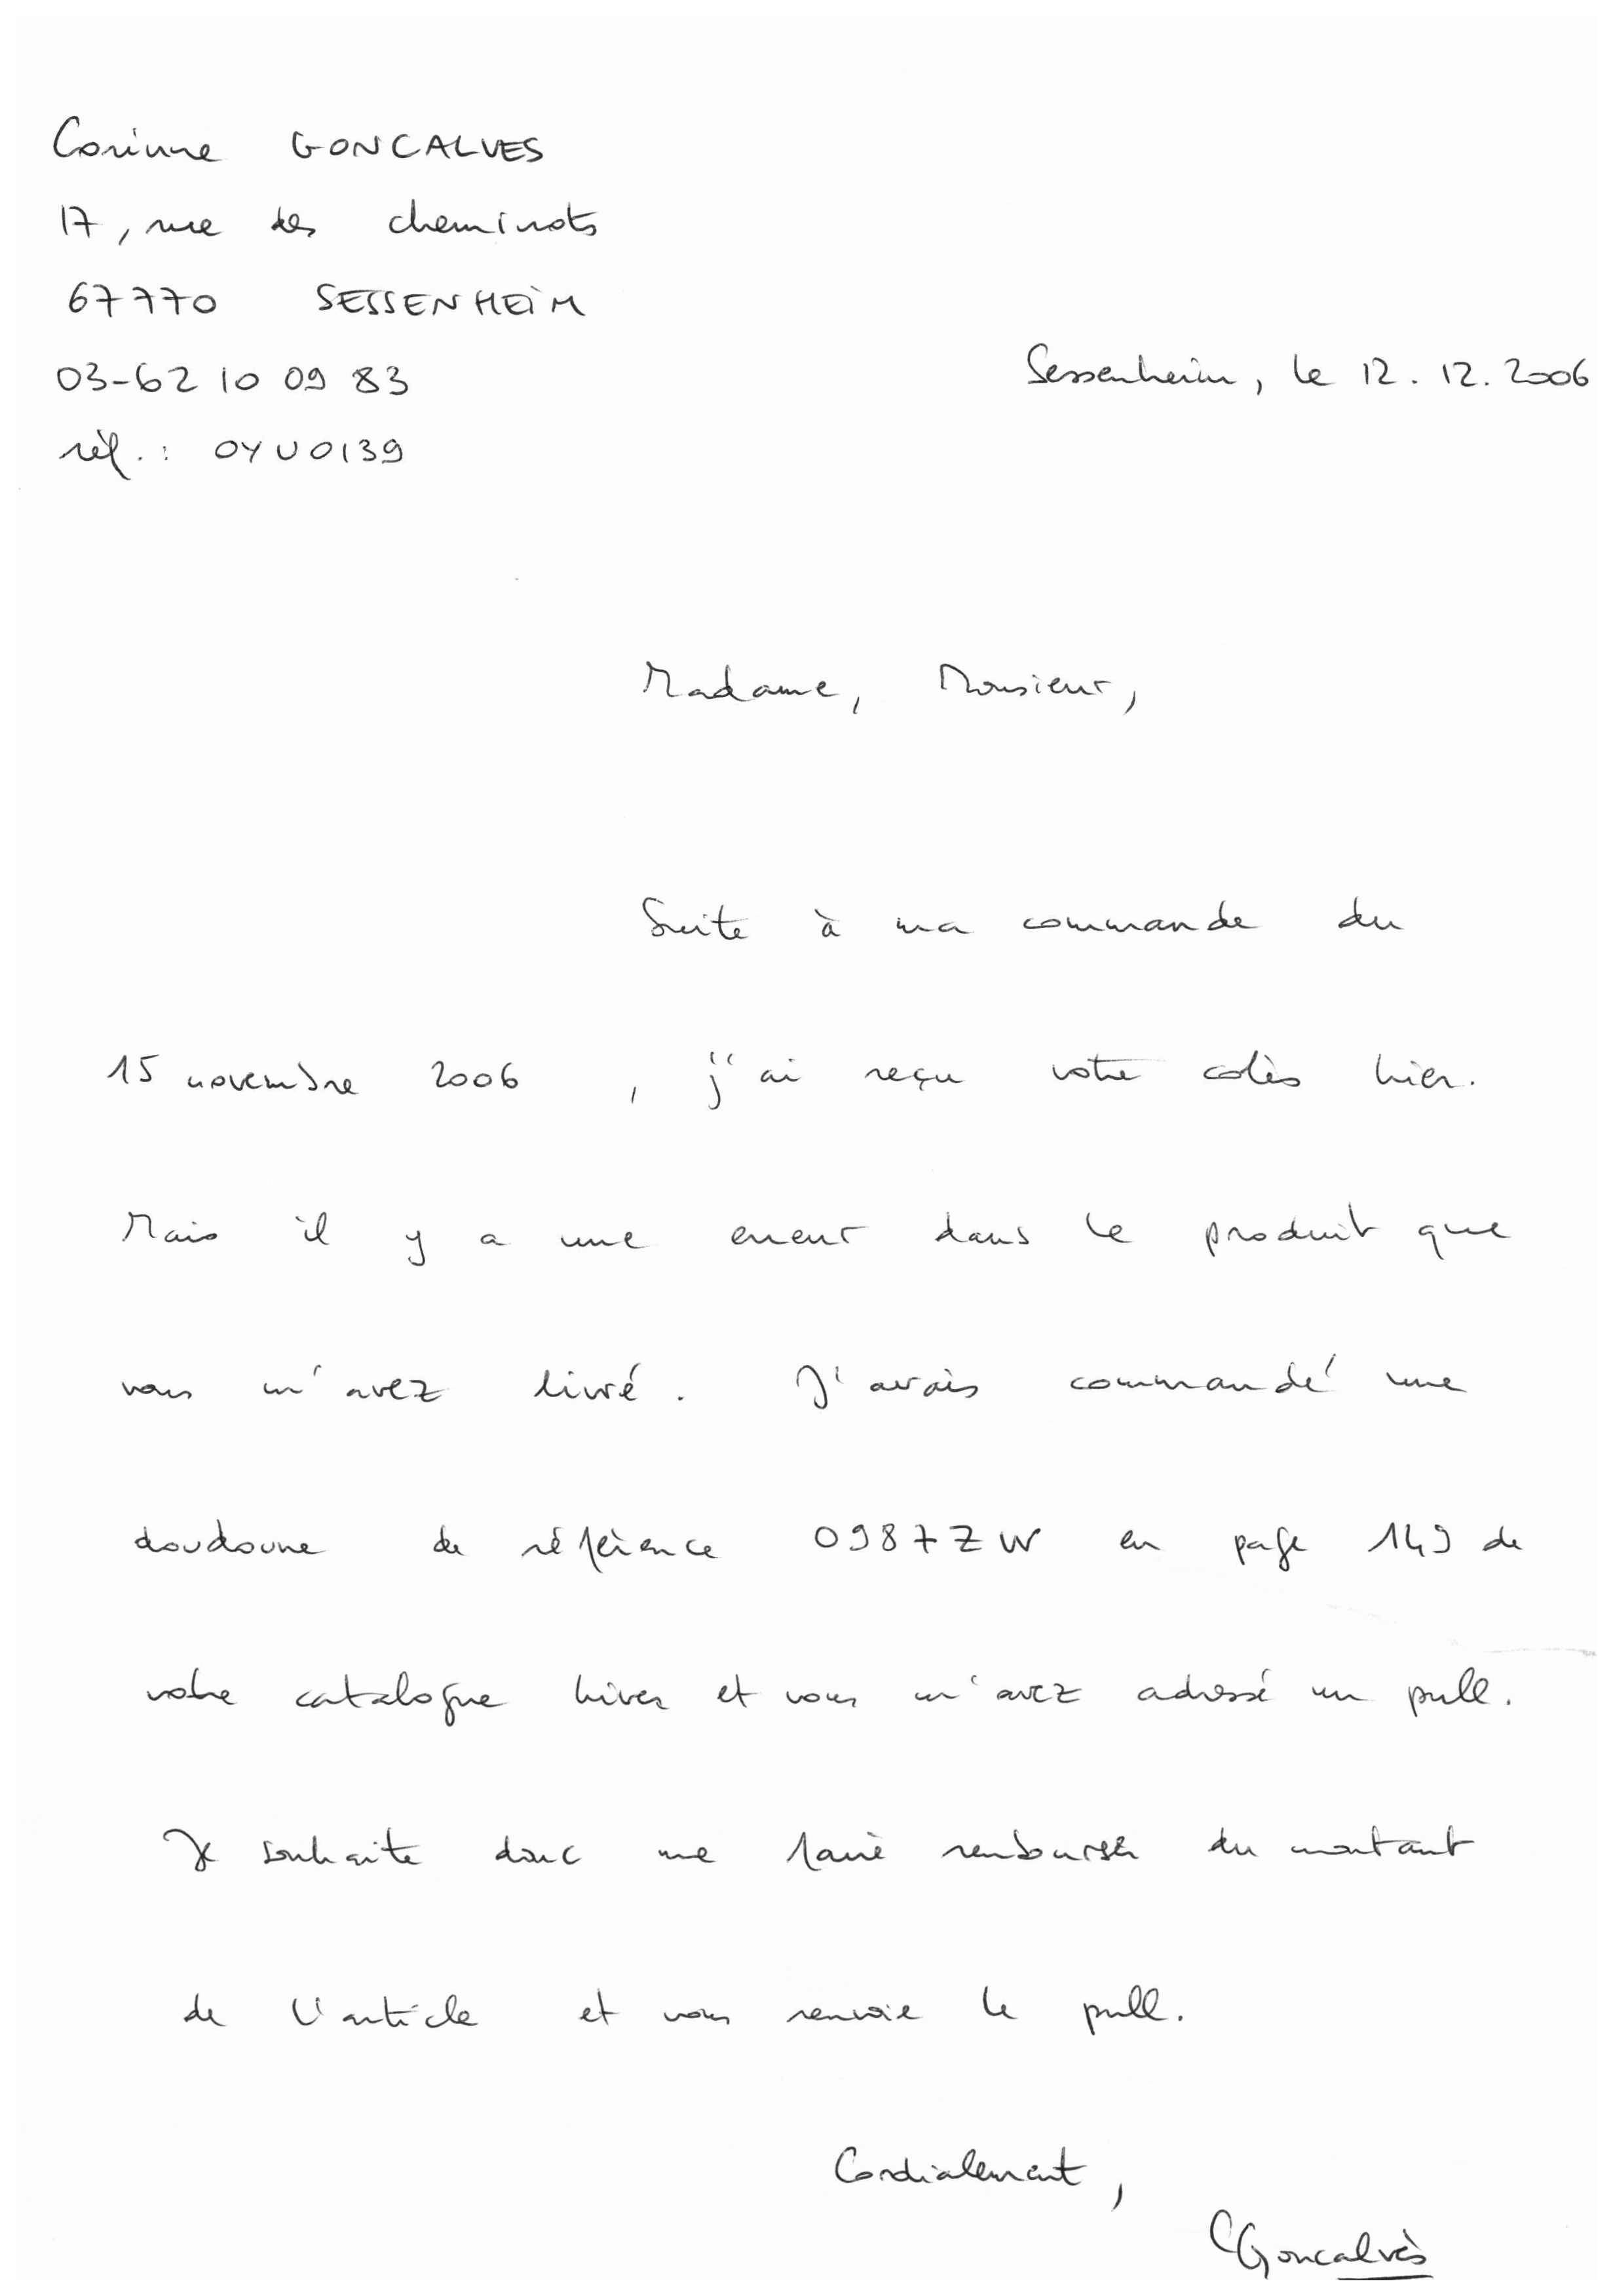 Corinne GONCALVES
17, rue des cheminots
67770 SESSENHEIM
03-62 10 09 83
Sessenheim, le 12.12.2006
réf. : OYU0139
Madame, Monsieur,
Suite à ma commande du
15 novembre 2006, j'ai reçu votre colis hier.
Mais il y a une erreur dans le produit que
vous m'avez livré. J'avais commandé une
doudoune de référence 0987ZW en page 149 de
votre catalogue hiver et vous m'avez adressé un pull.
Je souhaite donc me faire rembourser du montant
de l'article et vous renvoie le pull.
Cordialement,
CGoncalvès